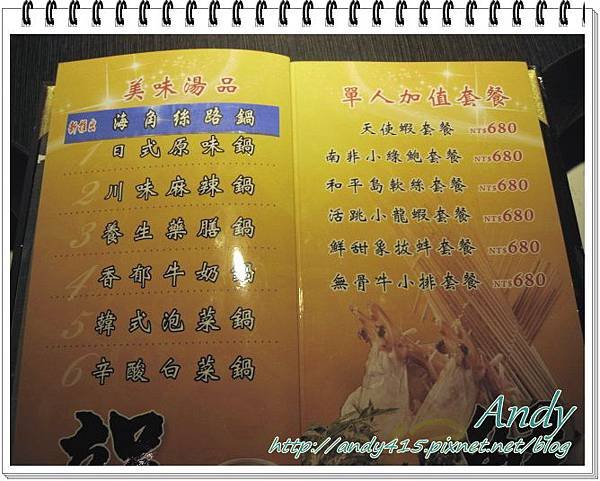 美味湯品
新推出 海角絲路鍋
1 日式原味鍋
2 川味麻辣鍋
3 養生藥膳鍋
4 香郁牛奶鍋
5 韓式泡菜鍋
6 辛酸白菜鍋
單人加值套餐
天使蝦套餐 NT$680
南非小綠鮑套餐 NT$680
和平島軟絲套餐 NT$680
活跳小龍蝦套餐 NT$680
鮮甜象拔蚌套餐 NT$680
無骨牛小排套餐 NT$680
Andy
http://andy415.pixnet.net/blog